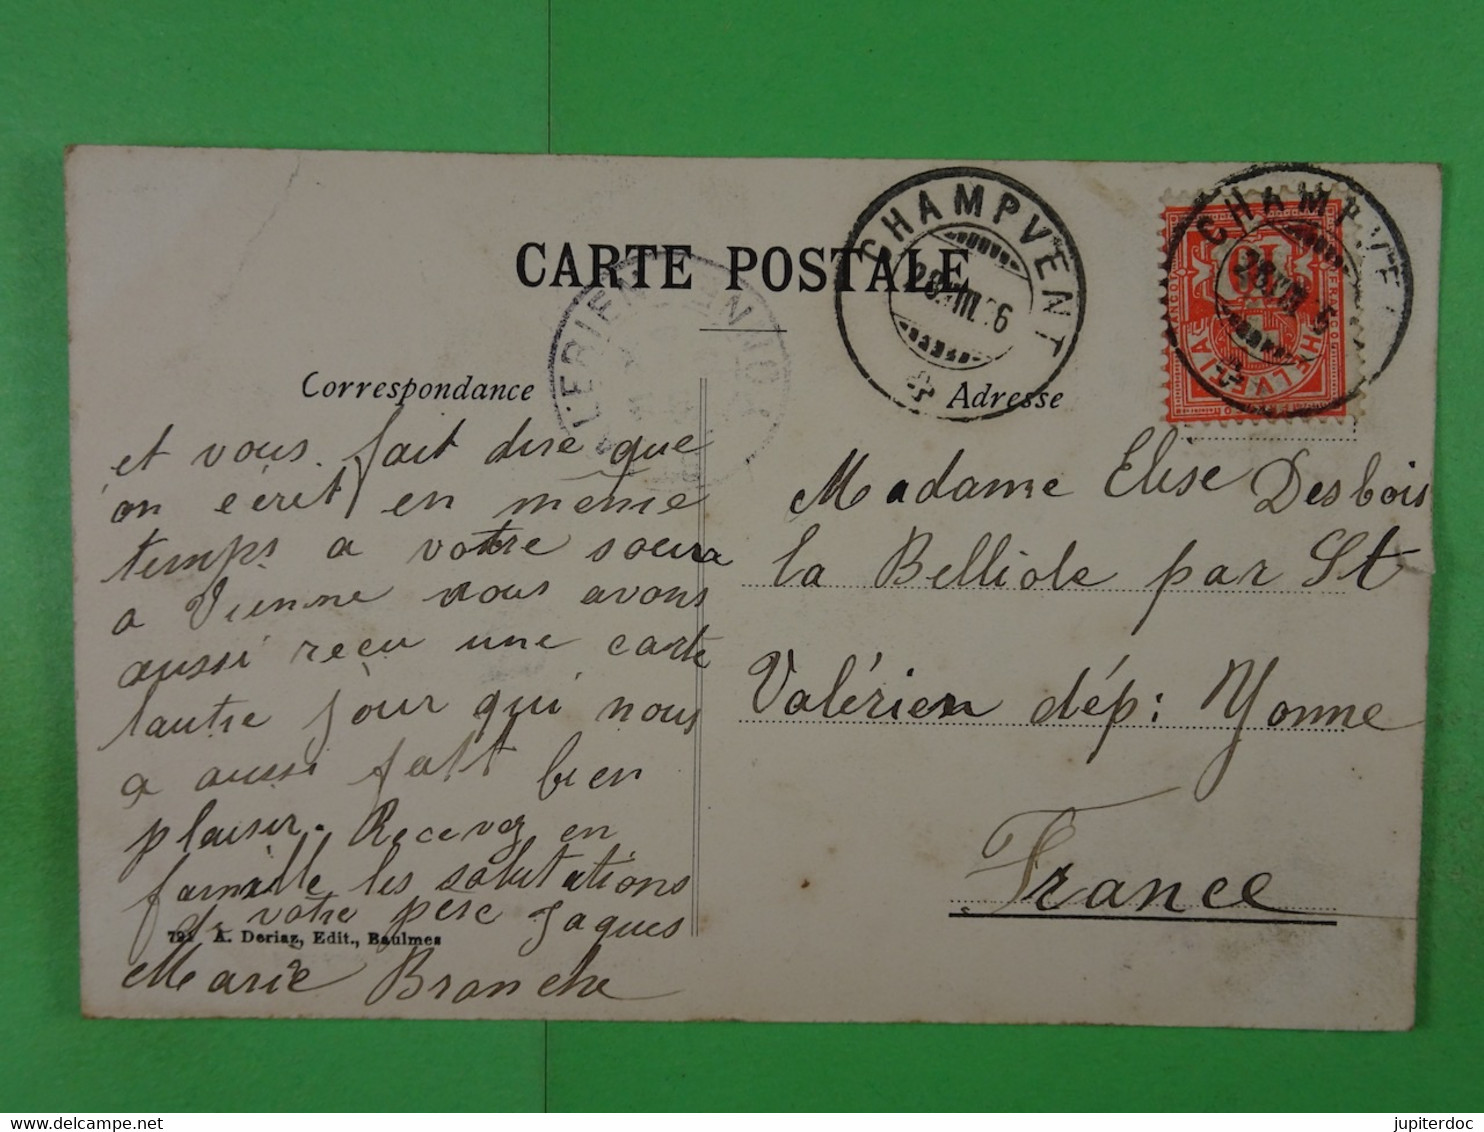 CARTE POSTALE
Correspondance
Adresse
CHAMPVENT
CHAMPVENT
HELVETIA
FRANCO
10
et vous fait dire que
on ecrit en meme
temps a votre soeur
a Vienne nous avons
aussi reçu une carte
lautre jour qui nous
a aussi fait bien
plaisir. Recevez en
famille les salutations
de votre pere Jaques
Marie Branche
A. Deriaz, Edit., Baulmes
Madame Elise Desbois
la Belliole par St
Valérien dép: Yonne
France
jupiterdoc
delcampe.net